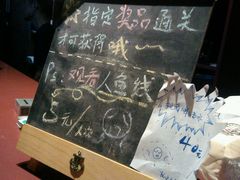 指定奖品通关
才可获得哦～
Ps:观看人鱼线
5元/人次
40元